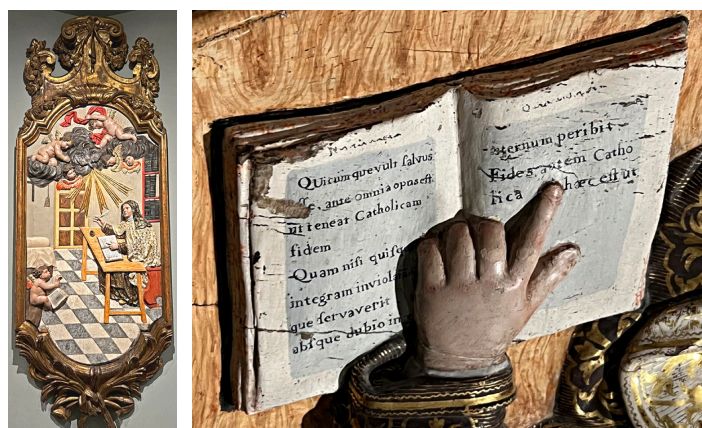 QUicumque vult ſalvus
eſſe, ante omnia opus eſt
ut teneat Catholicam
fidem
Quam niſi quiſq
integram inviola
que ſervaverit
abſque dubio in
æternum peribit
Fides autem Catho
lica hæc eſt ut